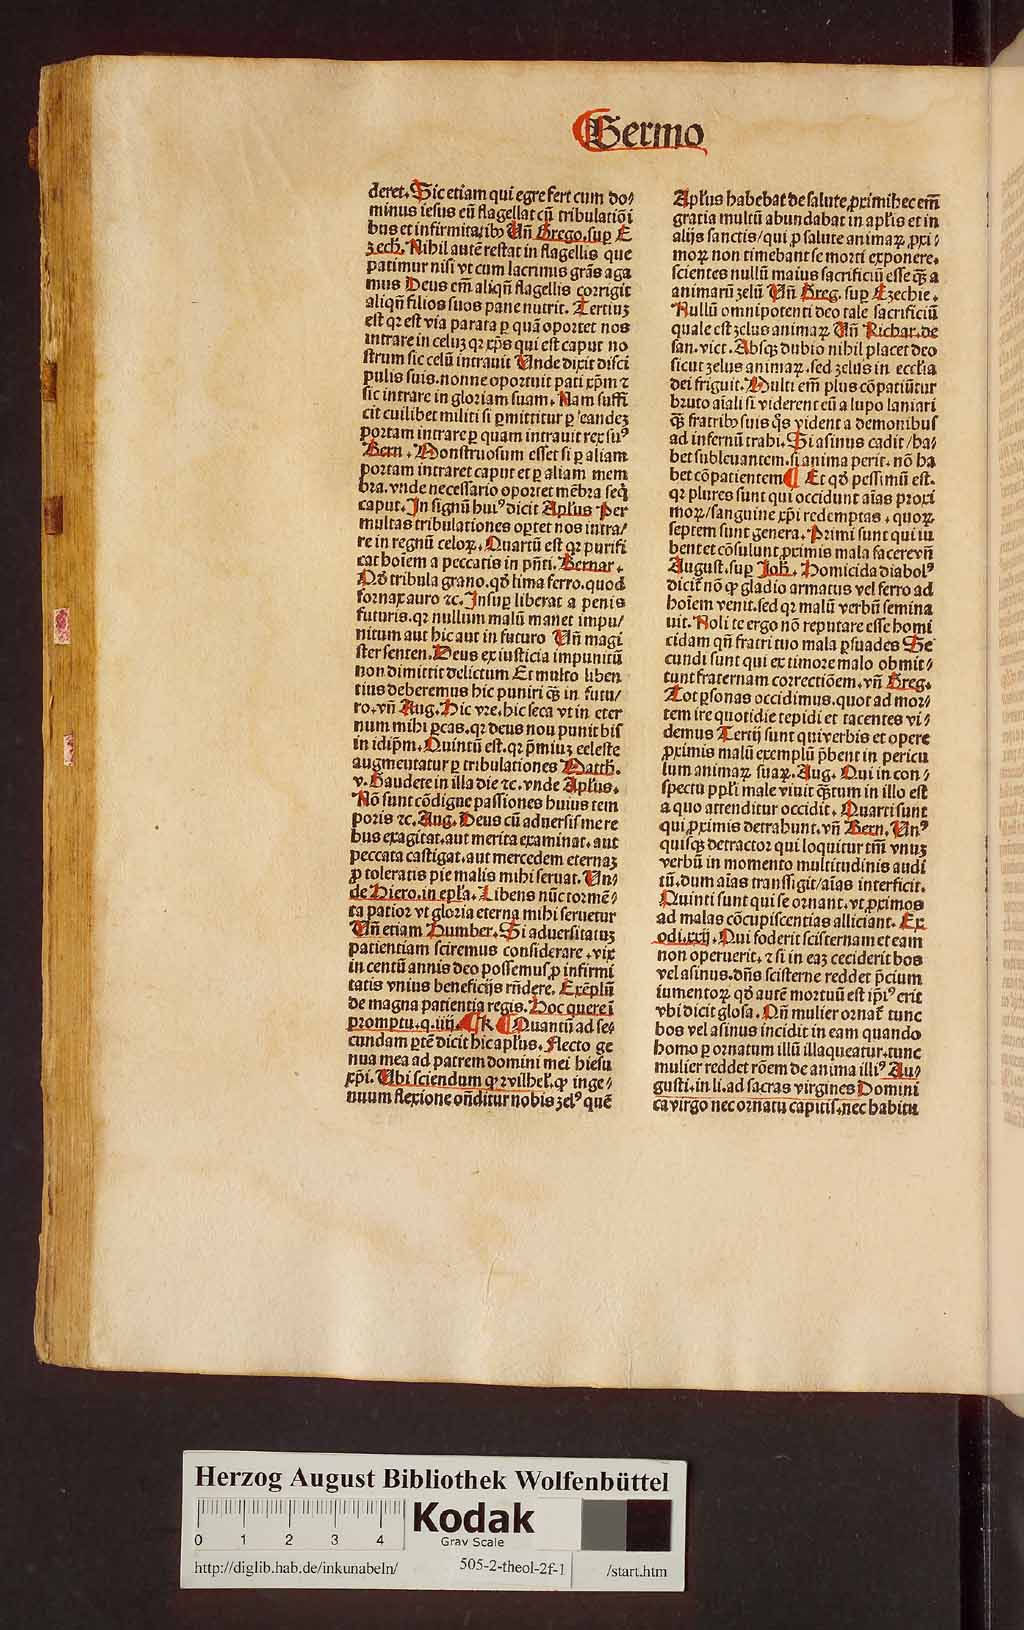 Sermo
deret. Sic etiam qui egre fert cum do⸗
minus iesus eū flagellat cū tribulatiōi
bus et infirmitatibꝰ Uñ Grego. suꝑ E
zech. Nihil autē restat in flagellis que
patimur nisi vt cum lacrimis grās aga
mus Deus em̄ aliqñ flagellis corrigit
aliqñ filios suos pane nutrit. Tertiuꝫ
est qr est via parata ꝑ quā oportet nos
intrare in celuꝫ qr xp̄s qui est caput no
strum sic celū intrauit Unde dixit disci
pulis suis. nonne oportuit pati xp̄m ⁊
sic intrare in gloriam suam. Nam suffi
cit cuilibet militi si ꝑmittitur ꝑ eandeꝫ
portam intrare ꝑ quam intrauit rex suꝰ
Bern. Monstruosum esset si ꝑ aliam
portam intraret caput et ꝑ aliam mem
bra. vnde necessario oportet mēbra seq̄
caput. In signū huiꝰ dicit Apl̄us Per
multas tribulationes oꝑtet nos intra/
re in regnū celoꝝ. Quartū est qr purifi
cat hoīem a peccatis in pn̄ti. Bernar.
Qd̓ tribula grano. qd̓ lima ferro. quod
fornax auro ⁊c. Insuꝑ liberat a penis
futuris. qr nullum malū manet impu/
nitum aut hic aut in futuro Uñ magi
ster senten. Deus ex iusticia impunitū
non dimittit delictum Et multo liben
tius deberemus hic puniri qꝫ̄ in futu/
ro. vñ Aug. Hic vre. hic seca vt in eter
num mihi ꝑcas. qr deus nou punit bis
in idip̄m. Quintū est. qr p̄miuꝫ celeste
augmentatur ꝑ tribulationes Matth.
v. Gaudete in illa die ⁊c. vnde Apl̄us.
Nō sunt cōdigne passiones huius tem
poris ⁊c. Aug. Deus cū aduersis me re
bus exagitat. aut merita examinat. aut
peccata castigat. aut mercedem eternaꝫ
ꝓ toleratis pie malis mihi seruat. Un⸗
de Hiero. in epl̄a. Libens nūc tormē⸗
ta patior vt gloria eterna mihi seruetur
Uñ etiam Humber. Si aduersitatuꝫ
patientiam sciremus considerare. vix
in centū annis deo possemus ꝓ infirmi
tatis vnius beneficijs rn̄dere. Exēplū
de magna patientia regis. Hoc quere ī
promptu. q. iiij. ¶ K ¶ Quantū ad se⸗
cundam ꝑtē dicit hic apl̄us. Flecto ge
nua mea ad patrem domini mei hiesu
xp̄i. Ubi sciendum ꝙ ꝛvilhel̓. ꝙ inge⸗
nuum flexione on̄ditur nobis zelꝰ quē
Apl̄us habebat de salute ꝓximi hec em̄
gratia multū abundabat in apl̄is et in
alijs sanctis/ qui ꝓ salute animaꝝ ꝓxi⸗
moꝝ non timebant se morti exponere.
scientes nullū maius sacrificiū esse qꝫ̄ a
animarū zelū Uñ Greg. suꝑ Ezechie.
Nullū omnipotenti deo tale sacrificiū
quale est zelus animaꝝ Uñ Richar. de
san. vict. Absqꝫ dubio nihil placet deo
sicut zelus animaꝝ. sed zelus in eccl̄ia
dei friguit. Multi em̄ plus cōpatiūtur
bruto aīali si viderent eū a lupo laniari
qꝫ̄ fratribꝰ suis q̄s vident a demonibus
ad infernū trahi. Si asinus cadit/ ha⸗
bet subleuantem. si anima perit. nō ha
bet cōpatientem ¶ Et qd̓ pessimū est.
qr plures sunt qui occidunt aīas proxi
moꝝ/ sanguine xp̄i redemptas. quoꝝ
septem sunt genera. Primi sunt qui iu
bent et cōsulunt ꝓximis mala facere vñ
August. suꝑ Joh̄. Homicida diabolꝰ
dicit̄ nō ꝙ gladio armatus vel ferro ad
hoīem venit. sed qr malū verbū semina
uit. Noli te ergo nō reputare esse homi
cidam qñ fratri tuo mala ꝑsuades Se
cundi sunt qui ex timore malo obmit⸗
tunt fraternam correctiōem. vñ Greg.
Tot ꝑsonas occidimus. quot ad mor⸗
tem ire quotidie tepidi et tacentes vi⸗
demus Tertij sunt qui verbis et opere
ꝓximis malū exemplū p̄bent in pericu
lum animaꝝ suaꝝ. Aug. Qui in con⸗
spectu ppl̄i male viuit qꝫ̄tum in illo est
a quo attenditur occidit. Quarti sunt
qui ꝓximis detrahunt. vñ Bern. Unꝰ
quisqꝫ detractor qui loquitur tm̄ vnuꝫ
verbū in momento multitudinis audi
tū. dum aīas transfigit/ aīas interficit.
Quinti sunt qui se ornant. vt ꝓximos
ad malas cōcupiscentias alliciant. Ex
odi. xxij. Qui foderit scisternam et eam
non operuerit. ⁊ si in eaꝫ ceciderit bos
vel asinus. dn̄s scisterne reddet p̄cium
iumentoꝝ qd̓ autē mortuū est ip̄iꝰ erit
vbi dicit glosa. Qn̄ mulier ornat̄ tunc
bos vel asinus incidit in eam quando
homo ꝑ ornatum illū illaqueatur. tunc
mulier reddet rōem de anima illiꝰ Au⸗
gusti. in li. ad sacras virgines Domini
ca virgo nec ornatu capitis. nec habitu
Herzog August Bibliothek Wolfenbüttel
0 1 2 3 4
Kodak
Gray Scale
http://diglib.hab.de/inkunabeln/ 505-2-theol-2f-1 /start.htm